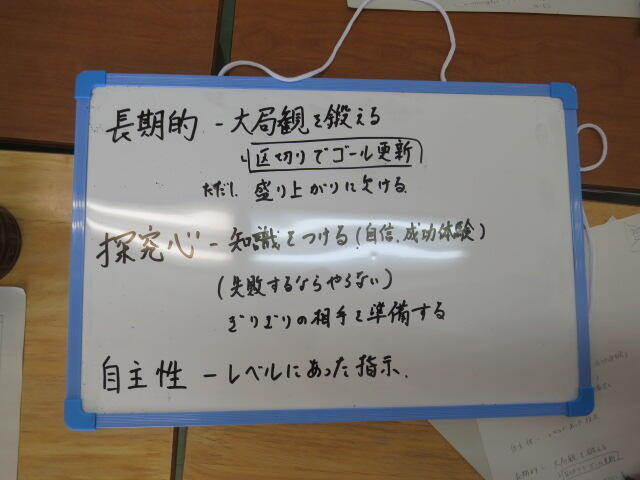 長期的 - 大局観を鍛える
区切りでゴール更新
ただし 盛り上がりに欠ける
探究心 - 知識をつける(自信、成功体験)
(失敗するならやらない)
ぎりぎりの相手を準備する
自主性 - レベルにあった指示.
自主性 -
長期的 - 大局観を鍛える